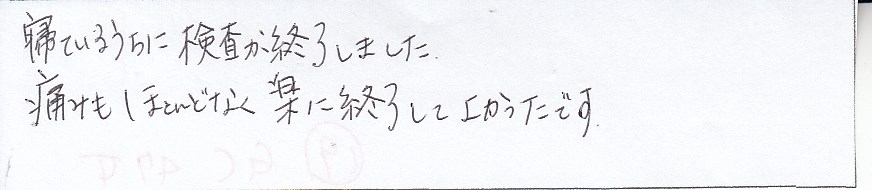 寝ているうちに検査が終了しました.
痛みもほとんどなく楽に終了してよかったです.